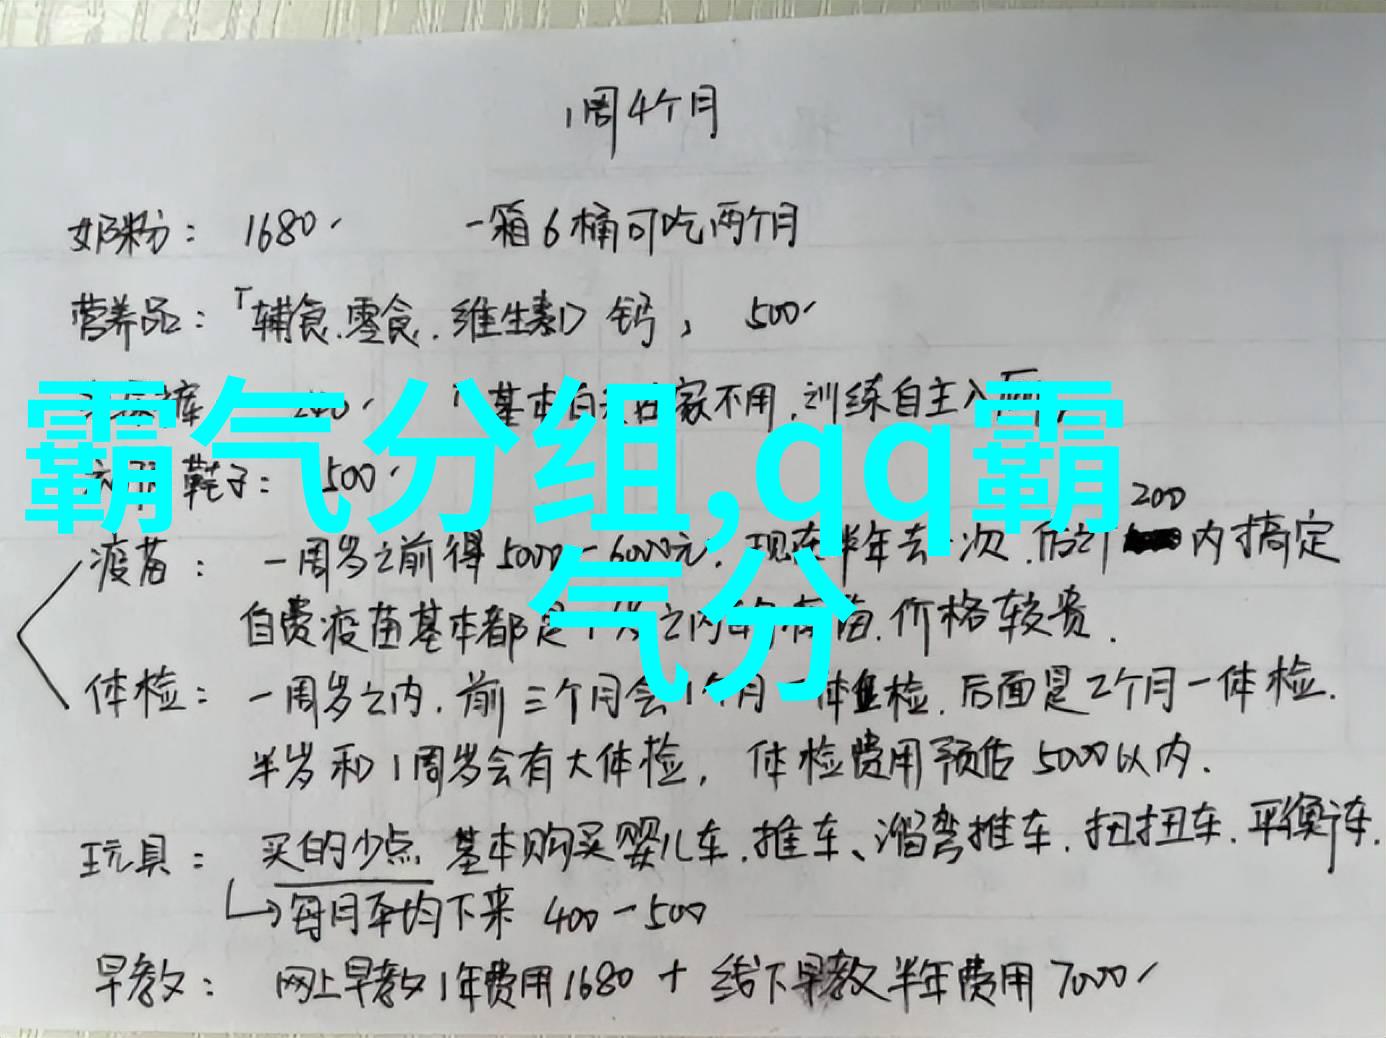 1周4个月
奶粉： 1680 一箱6桶可吃两个月
营养品：「辅食.零食.维生素D 钙， 500
裤 基本白天在家不用.训练自主入厕
霸气分组,qq霸
气分
鞋子： 500
200
疫苗： 一周岁之前得5000-6000元.现在半年去一次.后 内搞定
自费疫苗基本都是 岁之内的 .价格较贵.
体检： 一周岁之内.前三个月会1个月一体检.后面是2个月一体检.
半岁和1周岁会有大体检， 体检费用预估5000以内.
玩具： 买的少点 基本购买婴儿车.推车、溜弯推车.扭扭车.平衡车.
每月平均下来 400-500
早教： 网上早教1年费用1680 + 线下早教半年费用7000